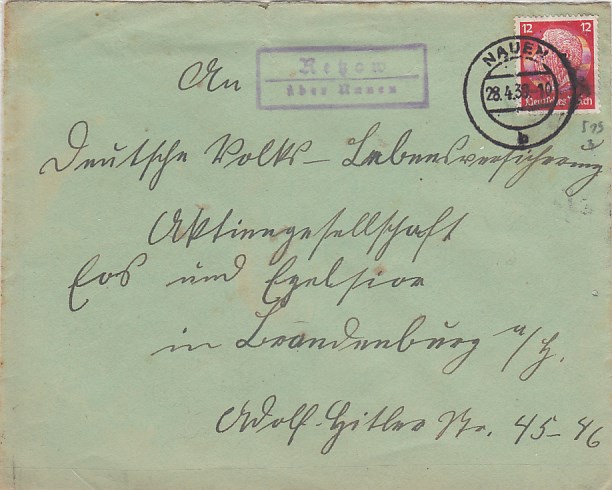 12 12
Deutsches Reich
NAUEN
28.4.38. 10
b
Retzow
über Nauen
An
Deutsche Volks-Lebensversicherung
Aktiengesellschaft
Eos und Exelsior
in Brandenburg a/H.
Adolf-Hitler Str. 45-46